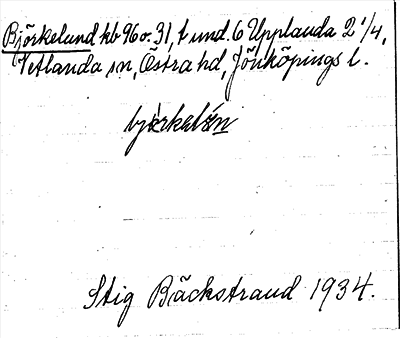 Björkelund kb 96 o. 31, t und. 6 Upplanda 2 1/4,
Vetlanda sn, Östra hd, Jönköpings l.
Stig Bäckstrand 1934.